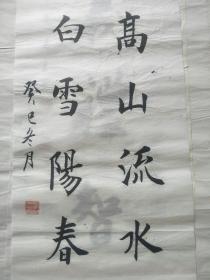 高山流水
白雪陽春
癸巳冬月